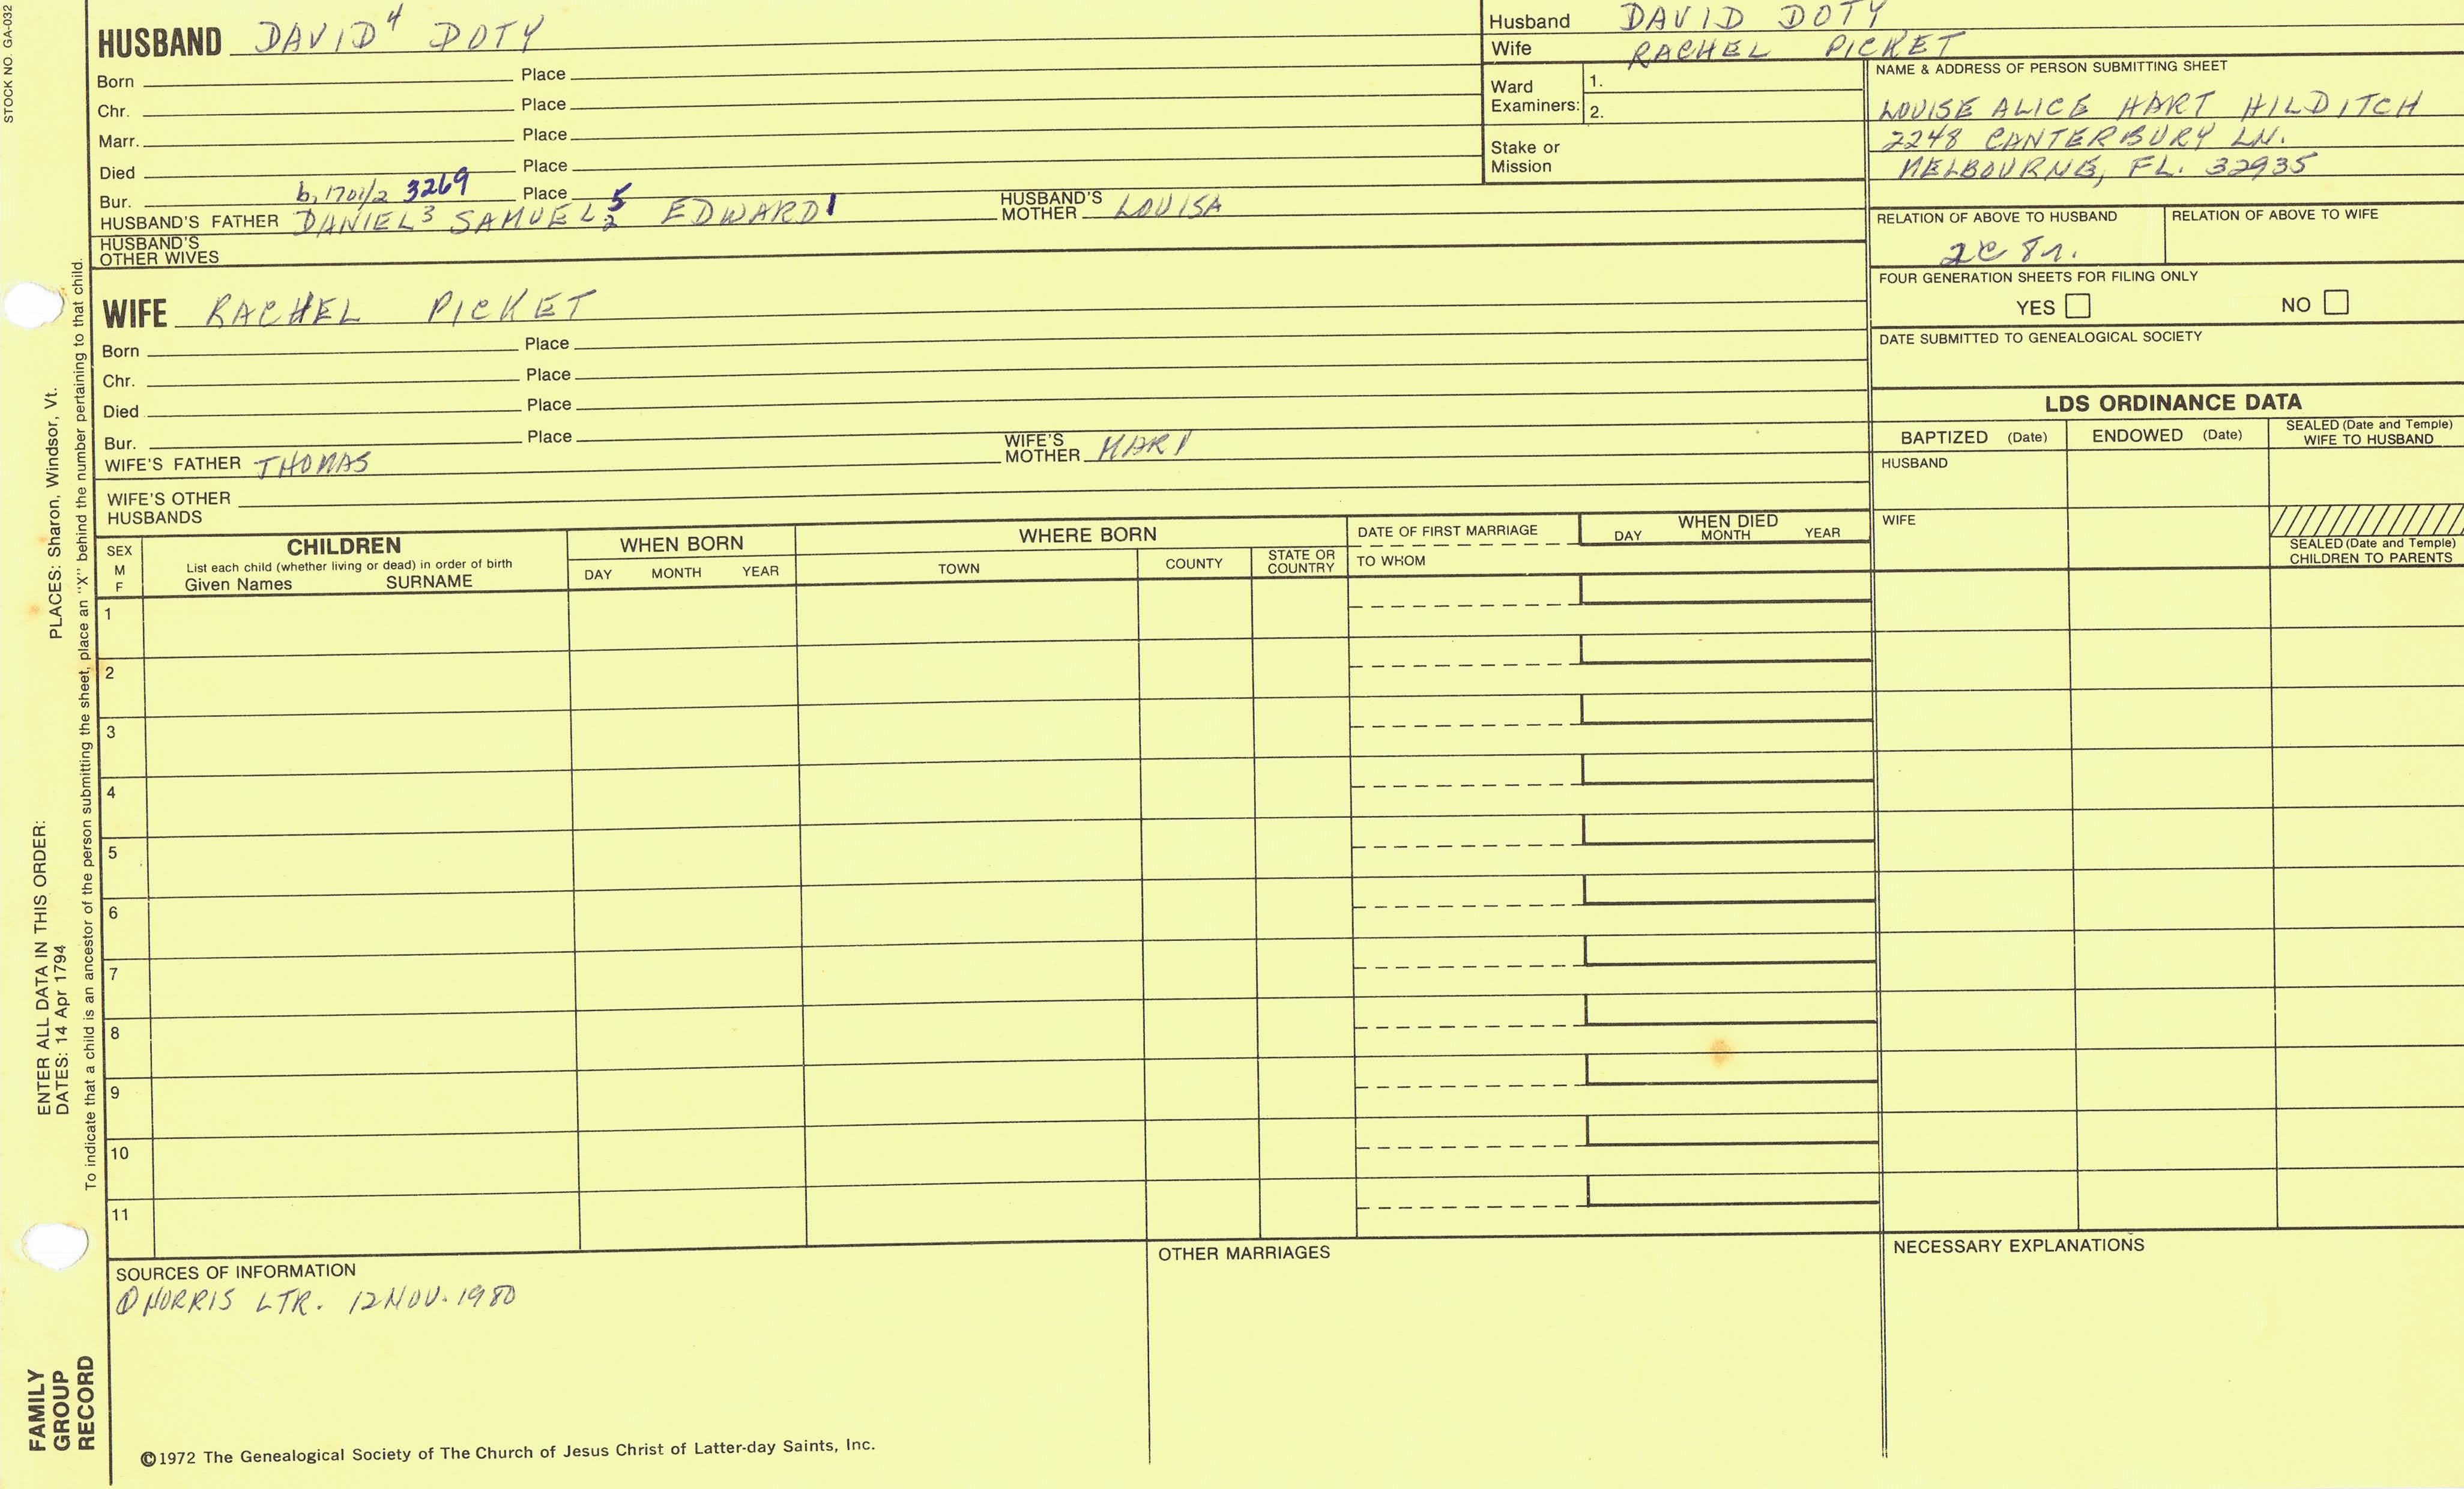 STOCK NO. GA-032
HUSBAND DAVID⁴ DOTY
Born Place
Chr. Place
Marr. Place
Died Place
Bur. b. 1701/2 3269 Place 5
HUSBAND'S FATHER DANIEL³ SAMUEL 2 EDWARD 1 HUSBAND'S MOTHER LOUISA
HUSBAND'S OTHER WIVES
WIFE RACHEL PICKET
Born Place
Chr. Place
Died Place
Bur. Place
WIFE'S FATHER THOMAS WIFE'S MOTHER MARY
WIFE'S OTHER HUSBANDS
Husband DAVID DOTY
Wife RACHEL PICKET
Ward Examiners: 1.
2.
Stake or Mission
NAME & ADDRESS OF PERSON SUBMITTING SHEET
LOUISE ALICE HART HILDITCH
2248 CANTERBURY LN.
MELBOURNE, FL. 32935
RELATION OF ABOVE TO HUSBAND RELATION OF ABOVE TO WIFE
2C 8r.
FOUR GENERATION SHEETS FOR FILING ONLY
YES NO
DATE SUBMITTED TO GENEALOGICAL SOCIETY
LDS ORDINANCE DATA
BAPTIZED (Date) ENDOWED (Date) SEALED (Date and Temple) WIFE TO HUSBAND
HUSBAND
WIFE
SEALED (Date and Temple) CHILDREN TO PARENTS
SEX M F
CHILDREN
List each child (whether living or dead) in order of birth
Given Names SURNAME
WHEN BORN
DAY MONTH YEAR
WHERE BORN
TOWN COUNTY STATE OR COUNTRY
DATE OF FIRST MARRIAGE
TO WHOM
WHEN DIED
DAY MONTH YEAR
1
2
3
4
5
6
7
8
9
10
11
SOURCES OF INFORMATION
① NORRIS LTR. 12 NOV. 1980
OTHER MARRIAGES
NECESSARY EXPLANATIONS
©1972 The Genealogical Society of The Church of Jesus Christ of Latter-day Saints, Inc.
FAMILY GROUP RECORD
ENTER ALL DATA IN THIS ORDER:
DATES: 14 Apr 1794 PLACES: Sharon, Windsor, Vt.
To indicate that a child is an ancestor of the person submitting the sheet, place an "X" behind the number pertaining to that child.